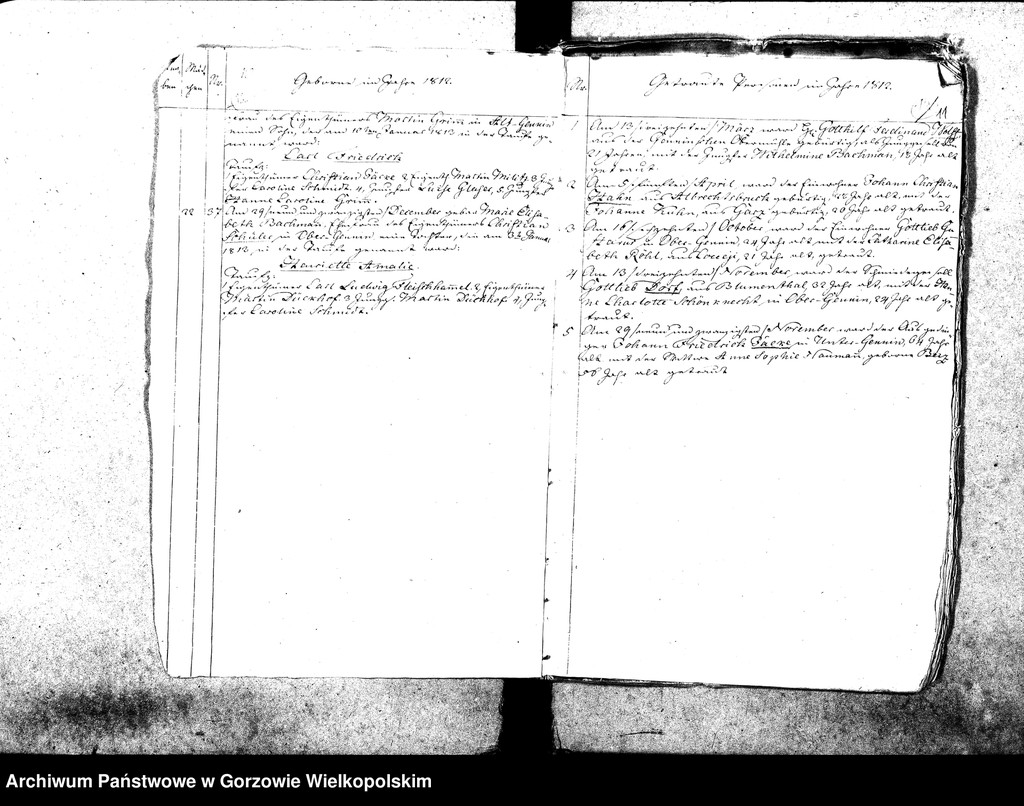 Kna-
ben
Mäd-
chen
Nr.
Geborne im Jahre 1812.
frau des Eigenthümers Martin Grim in Alt-Gennin
einen Sohn, der am Januar 1813 in der Taufe ge-
nannt ward:
Carl Friedrich
Taufz:
1, Eigenthümer Christian Jäcke 2, Eigenth. Martin 3,
Caroline Schmidt, 4, Jungfer Luise Glaser, 5, Jungfer
Hanne Caroline Grim.
22 37 Am 29 /neun und zwanzigsten/ December gebar Marie Elisa-
beth Bachman, Ehefrau des Eigenthümers Christian
Schüler in Ober-Gennin eine Tochter, die am Januar
1813, in der Taufe genannt ward:
Henriette Amalie.
Taufz:
1, Eigenthümer Carl Ludwig Fleischhammel, 2, Eigenthümer
Martin Dückhof 3, Jungg. Martin Dückhof 4, Jung-
fer Caroline Schmidt.
Nr.
Getraute Personen im Jahre 1812.
11
1 Am 13 /dreizehnten/ März ward Gotthilf Ferdinand
aus der Genninschen Obermühle gebürtig, als Junggesell von
21 Jahren, mit der Jungfer Wilhelmine Bachman, 18 Jahr alt
getraut.
2 Am 5 /fünften/ April, ward der Einwohner Johann Christian
Hahn aus Albrechtsbruch gebürtig, Jahr alt, mit der
Johanne Kuhn, aus gebürtig, 20 Jahr alt getraut.
3 Am 16 October, ward der Einwohner Gottlieb
in Ober-Gennin, 24 Jahr alt mit der Catharine Elisa-
beth Röhl, aus Cocceji, 21 Jahr alt, getraut.
4 Am 13 /dreizehnten/ November, ward der Schmiedegesell
Gottlieb Dorf, aus Blumenthal, 32 Jahr alt, mit der
Charlotte Schönknecht, in Ober-Gennin, 24 Jahr alt ge-
traut.
5 Am 29 /neun und zwanzigsten/ November ward der Ausgedin-
ger Johann Friedrich Jäcke, in Unter-Gennin, 64 Jahr
alt mit der Wittwe Anne Sophie Nauman, geborne
56 Jahr alt getraut
Archiwum Państwowe w Gorzowie Wielkopolskim